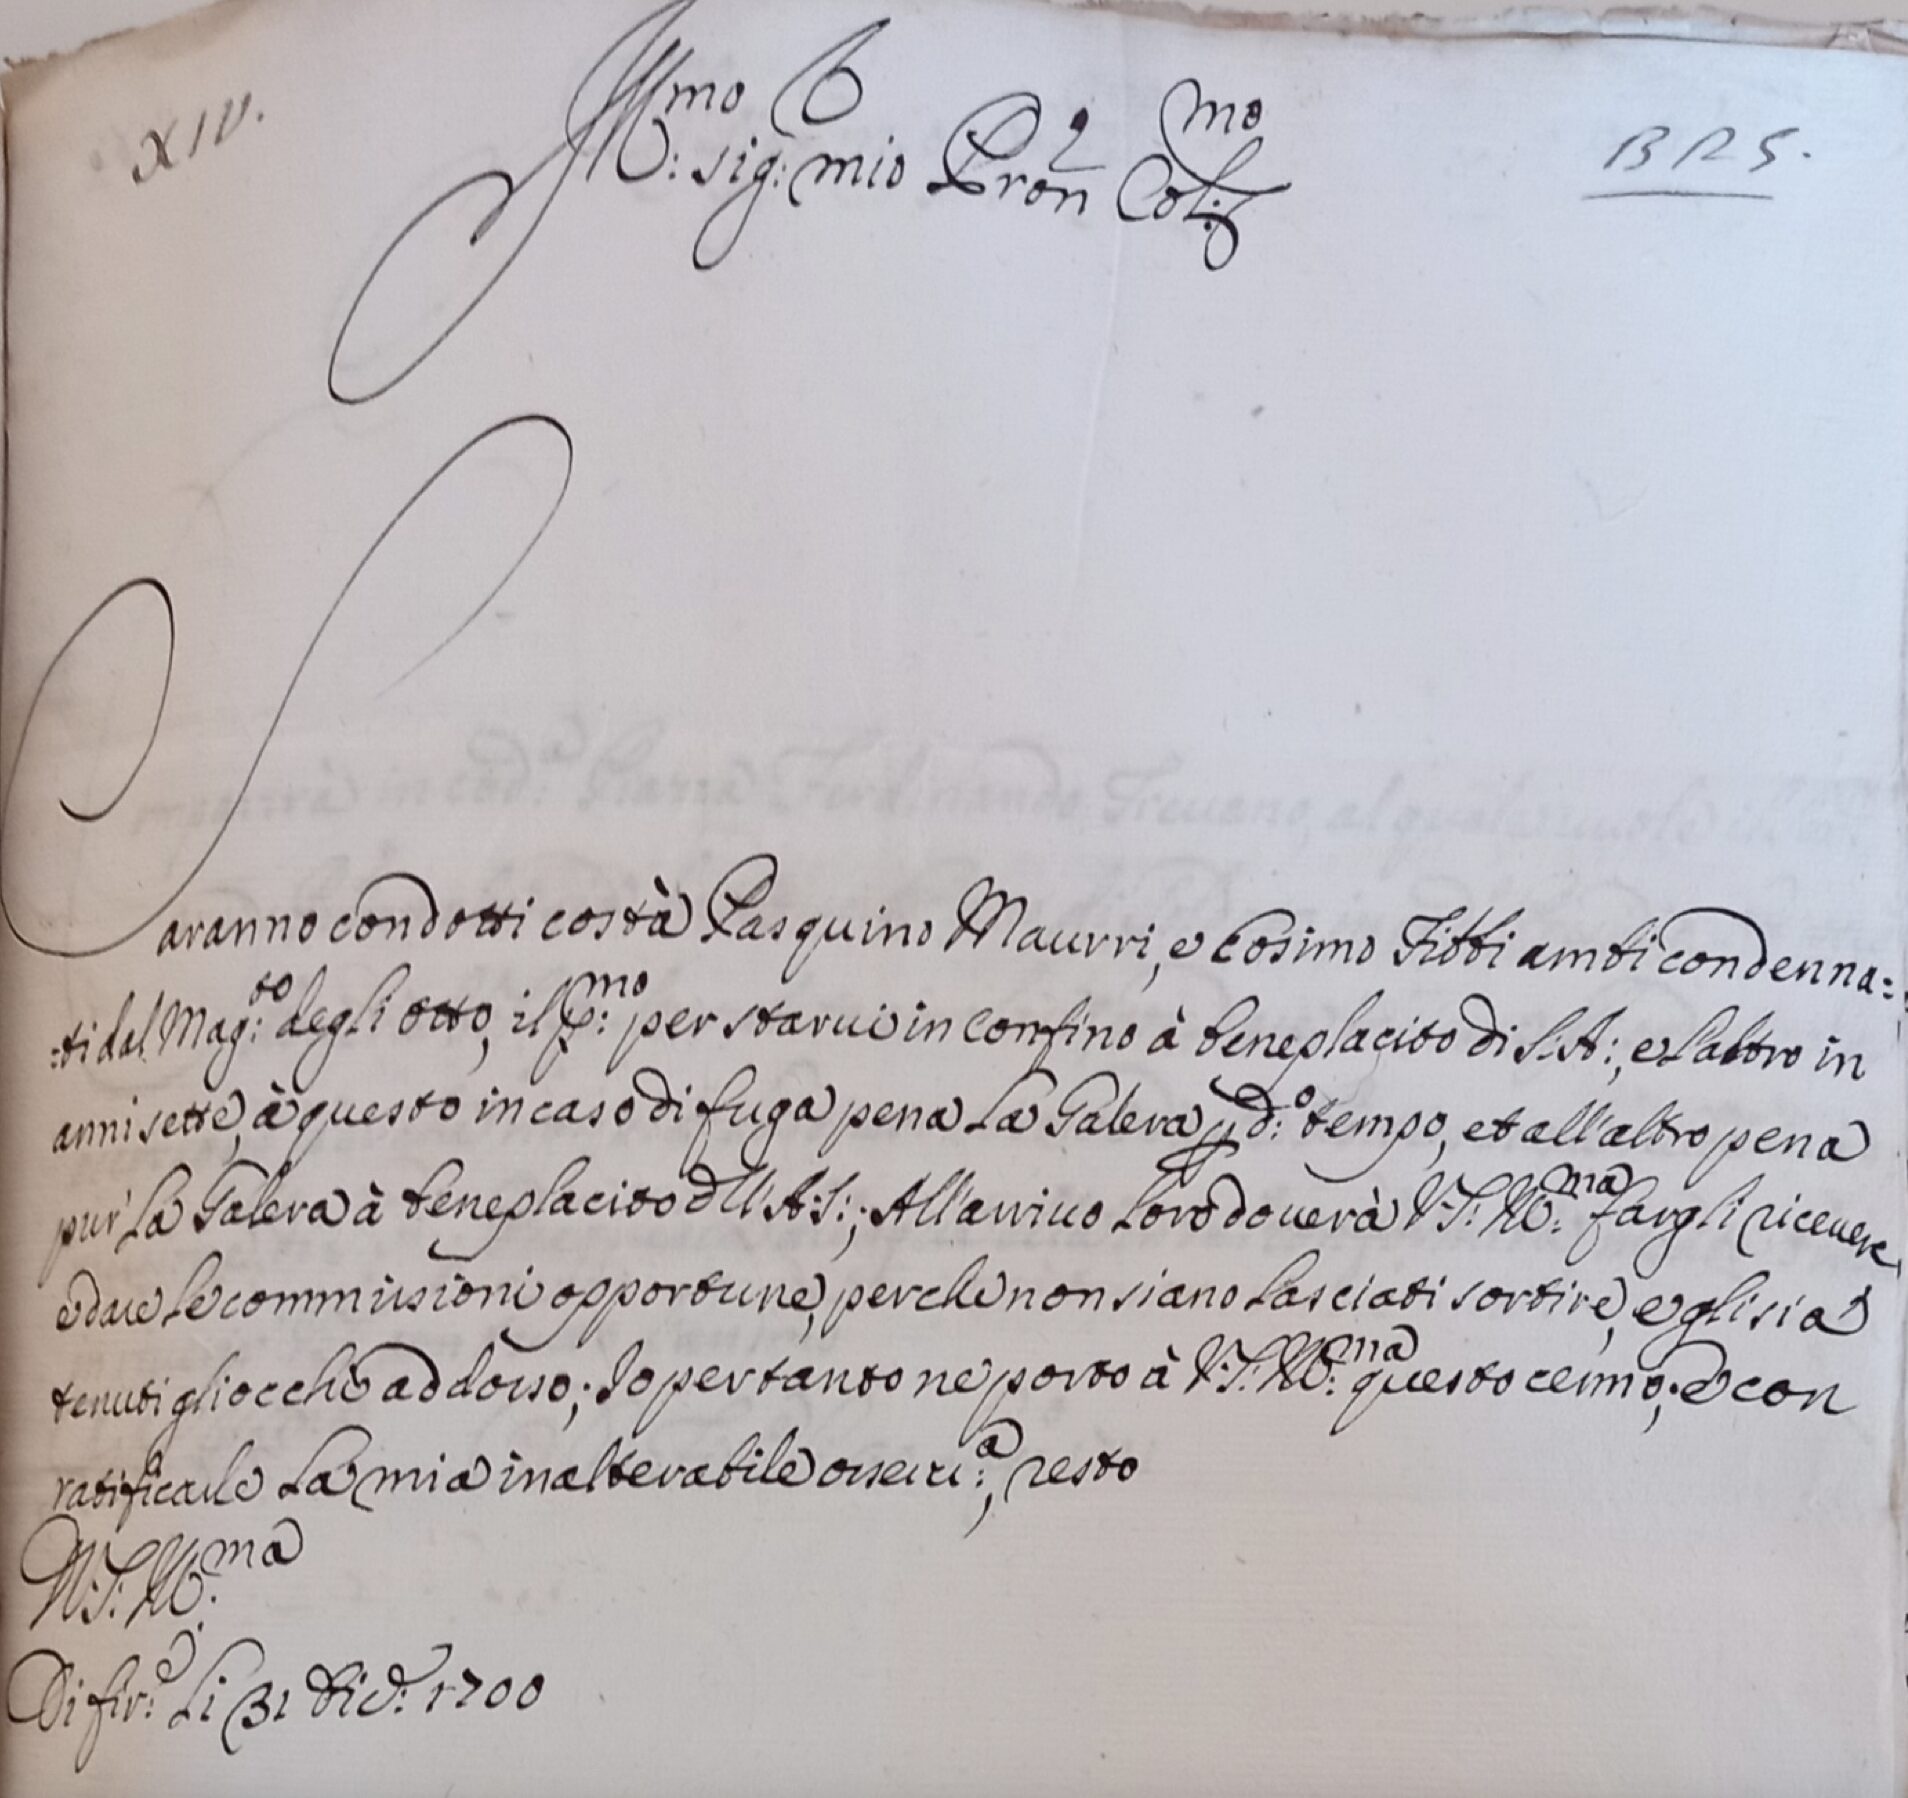 XIV.
Ill:mo sig: mio Pron Col:mo
Saranno condotti costà Pasquino Maurri, e Cosimo Fitti ambi condenna=
=ti dal Mag:to degli Otto, il p:mo per starvi in confino à beneplacito di S: A:, e l'altro in
anni sette, à questo in caso di fuga pena la Galera p d:o tempo, et all'altro pena
pur' la Galera à beneplacito dll' A: S:; All'arrivo loro doverà V: S: Ill:ma fargli ricevere
e dare le commissioni opportune, perche non siano lasciati sortire, e gli sia
tenuti gli occhi addosso; Io per tanto ne porto à V: S: Ill:ma questo cenno; e con
ratificarle la mia inalterabile osserv:a, resto
V: S: Ill:ma
Di fir:e li 31 Dic: 1700